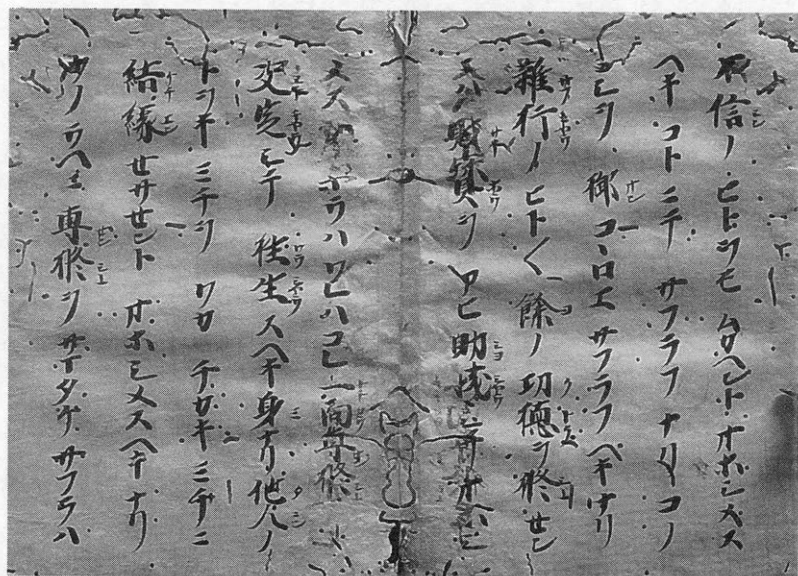 不信ノ ヒトヲモ ムカヘムト オホシメス
ヘキ コトニテ サフラフ ナリ コノ
ヨシヲ 御コヽロエ サフラフ ヘキナリ
一雜行ノ ヒト〱 餘ノ 功德ヲ 修セム
ニハ 財寶ヲ アヒ助成シテ オホシ
メス ワレハコレ 一向專修
決定シテ 往生スヘキ 身ナリ 他人ノ
トヲキ ミチヲ ワカ チカキ ミチニ
結縁セサセムト オホシメスヘキナリ
ソノウヘニ 專修ヲ サマタケ サフラハ